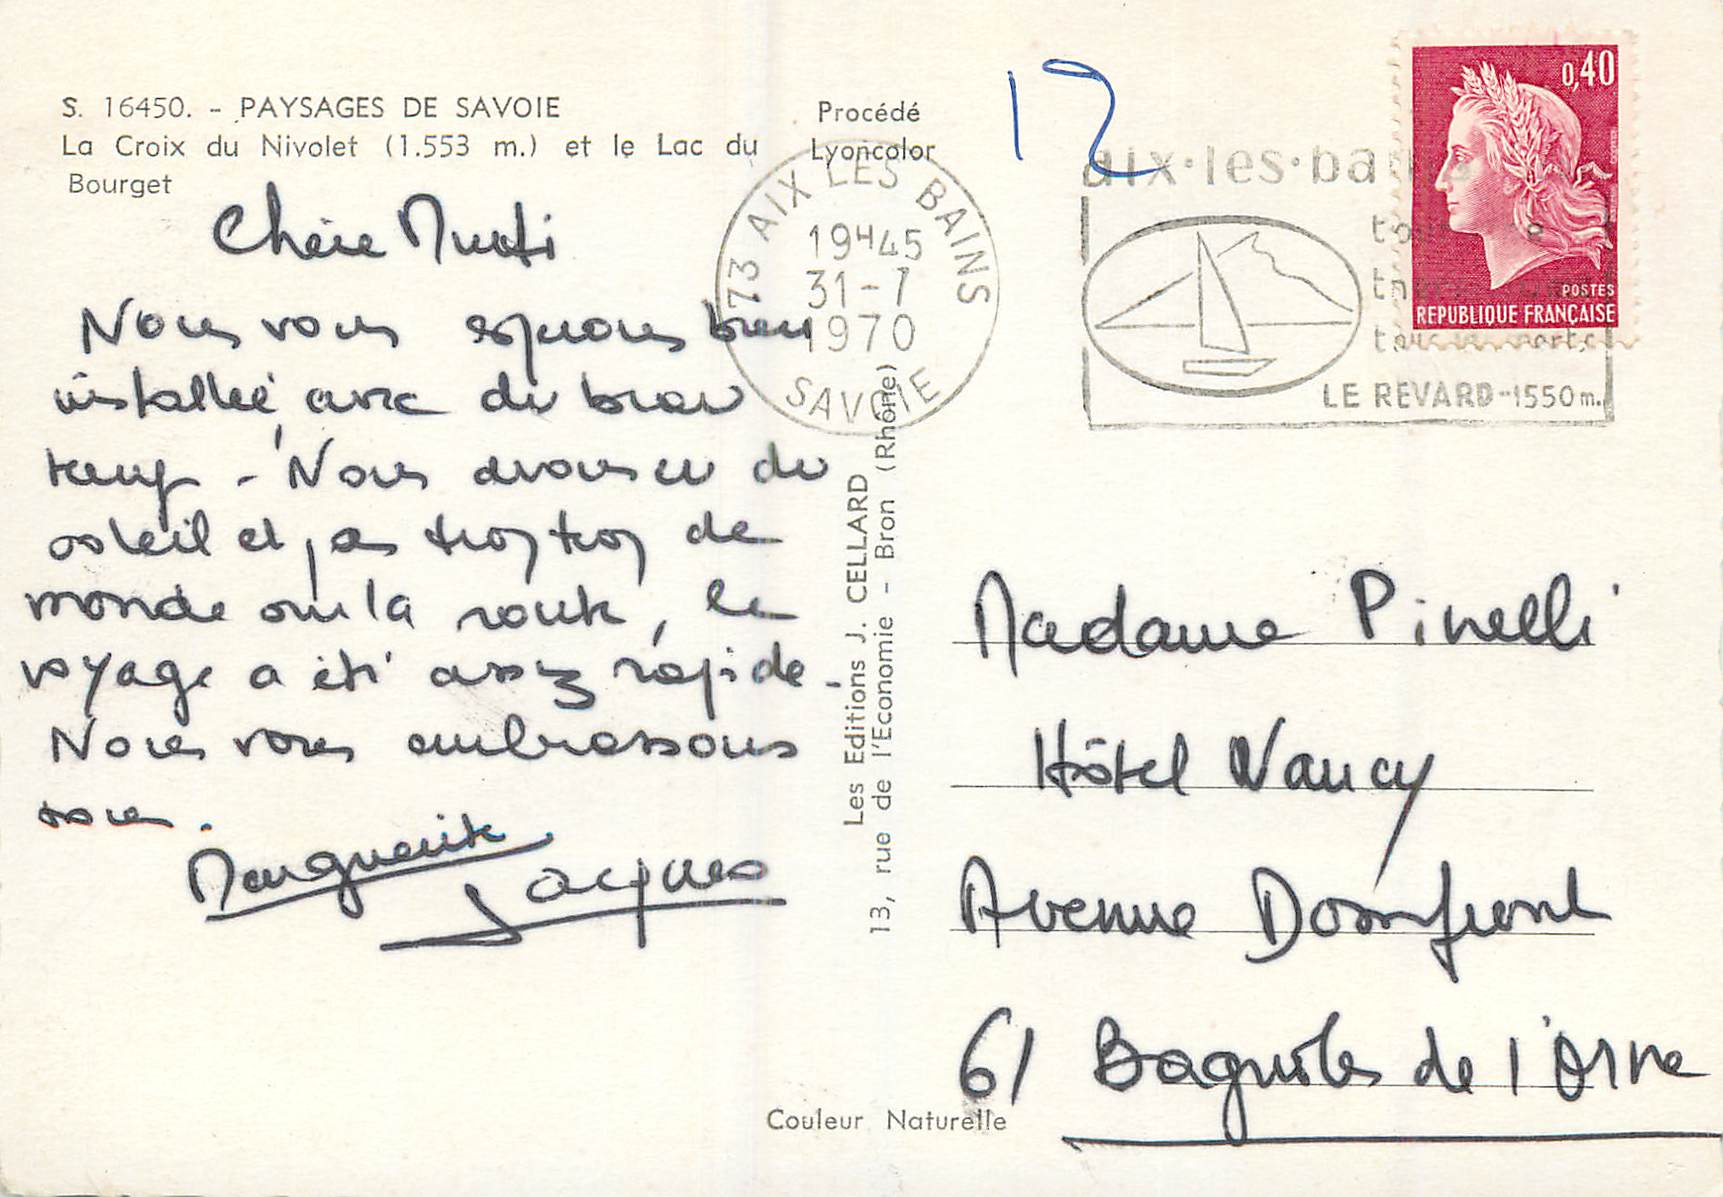 S. 16450. - PAYSAGES DE SAVOIE
La Croix du Nivolet (1.553 m.) et le Lac du
Bourget
Procédé
Lyoncolor
Chère
Nous vous espérons bien
installée, avec du beau
temps - Nous avons eu du
soleil et pas trop trop de
monde sur la route, le
voyage a été assez rapide.
Nous vous embrassons
tous.
Marguerite
Jacques
73 AIX LES BAINS
19H45
31-7
1970
SAVOIE
12
aix·les·ba
LE REVARD-1550m.
0,40
POSTES
REPUBLIQUE FRANÇAISE
Les Editions J. CELLARD
13, rue de l'Economie - Bron (Rhône)
Madame Pinelli
Hôtel Nancy
Avenue Domfront
61 Bagnoles de l'Orne
Couleur Naturelle